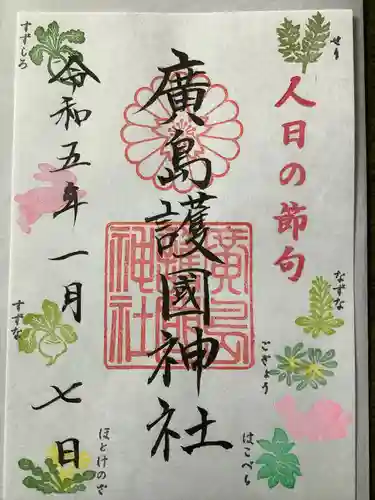 せり
人日の節句
なずな
ごぎょう
はこべら
廣島護國神社
廣島護國神社
すずしろ
令和五年一月七日
すずな
ほとけのざ